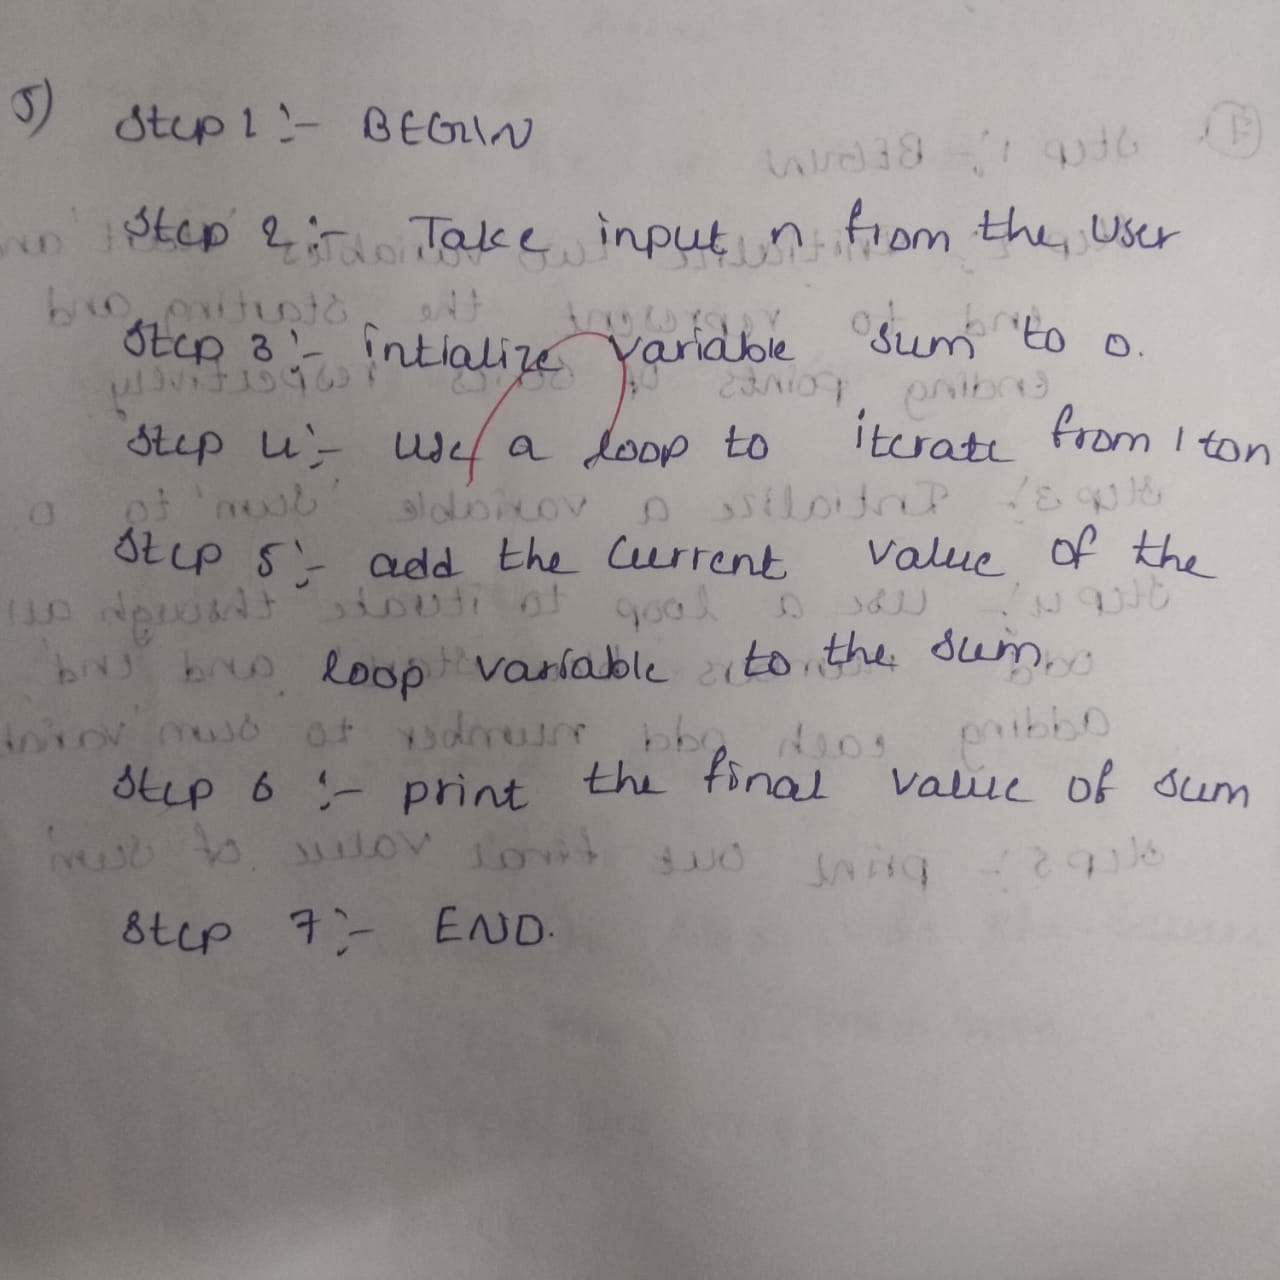 5) Step 1 :- BEGIN
Step 2 :- Take input n from the user
Step 3 :- intialize variable sum to 0.
Step 4 :- use a loop to iterate from 1 to n
Step 5 :- add the current value of the
loop variable to the sum
Step 6 :- print the final value of sum
Step 7 :- END.